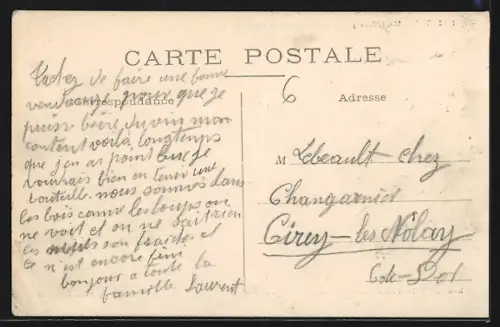 CARTE POSTALE
Correspondance
Adresse
6
Tachez de faire une bonne
vendange pour que je
puisse boire du vin mon
content voila longtemps
que j'en ai point bue je
voudrais bien en tenir une
bouteille. nous sommes dans
les bois comme les loups on
ne voit et on ne sait rien
les nuits son fraiches et
ce n'est encore fini
bonjour a toute la
famille Laurent
M Lebeault chez
Changarnier
Cirey-les Nolay
Cte-d'Or